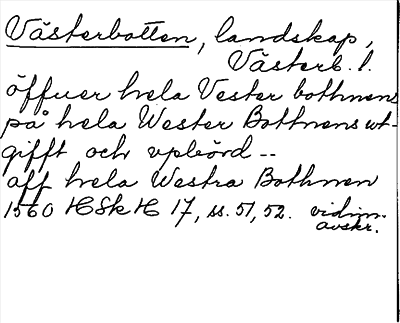 Västerbotten, landskap,
Västerb. l.
öffuer hela Vester bothnens
på hela Wester Bothnens ut-
gifft och upbörd --
aff hela Westra Bothnen
1560 HSkH 17, ss. 51, 52. vidim.
avskr.